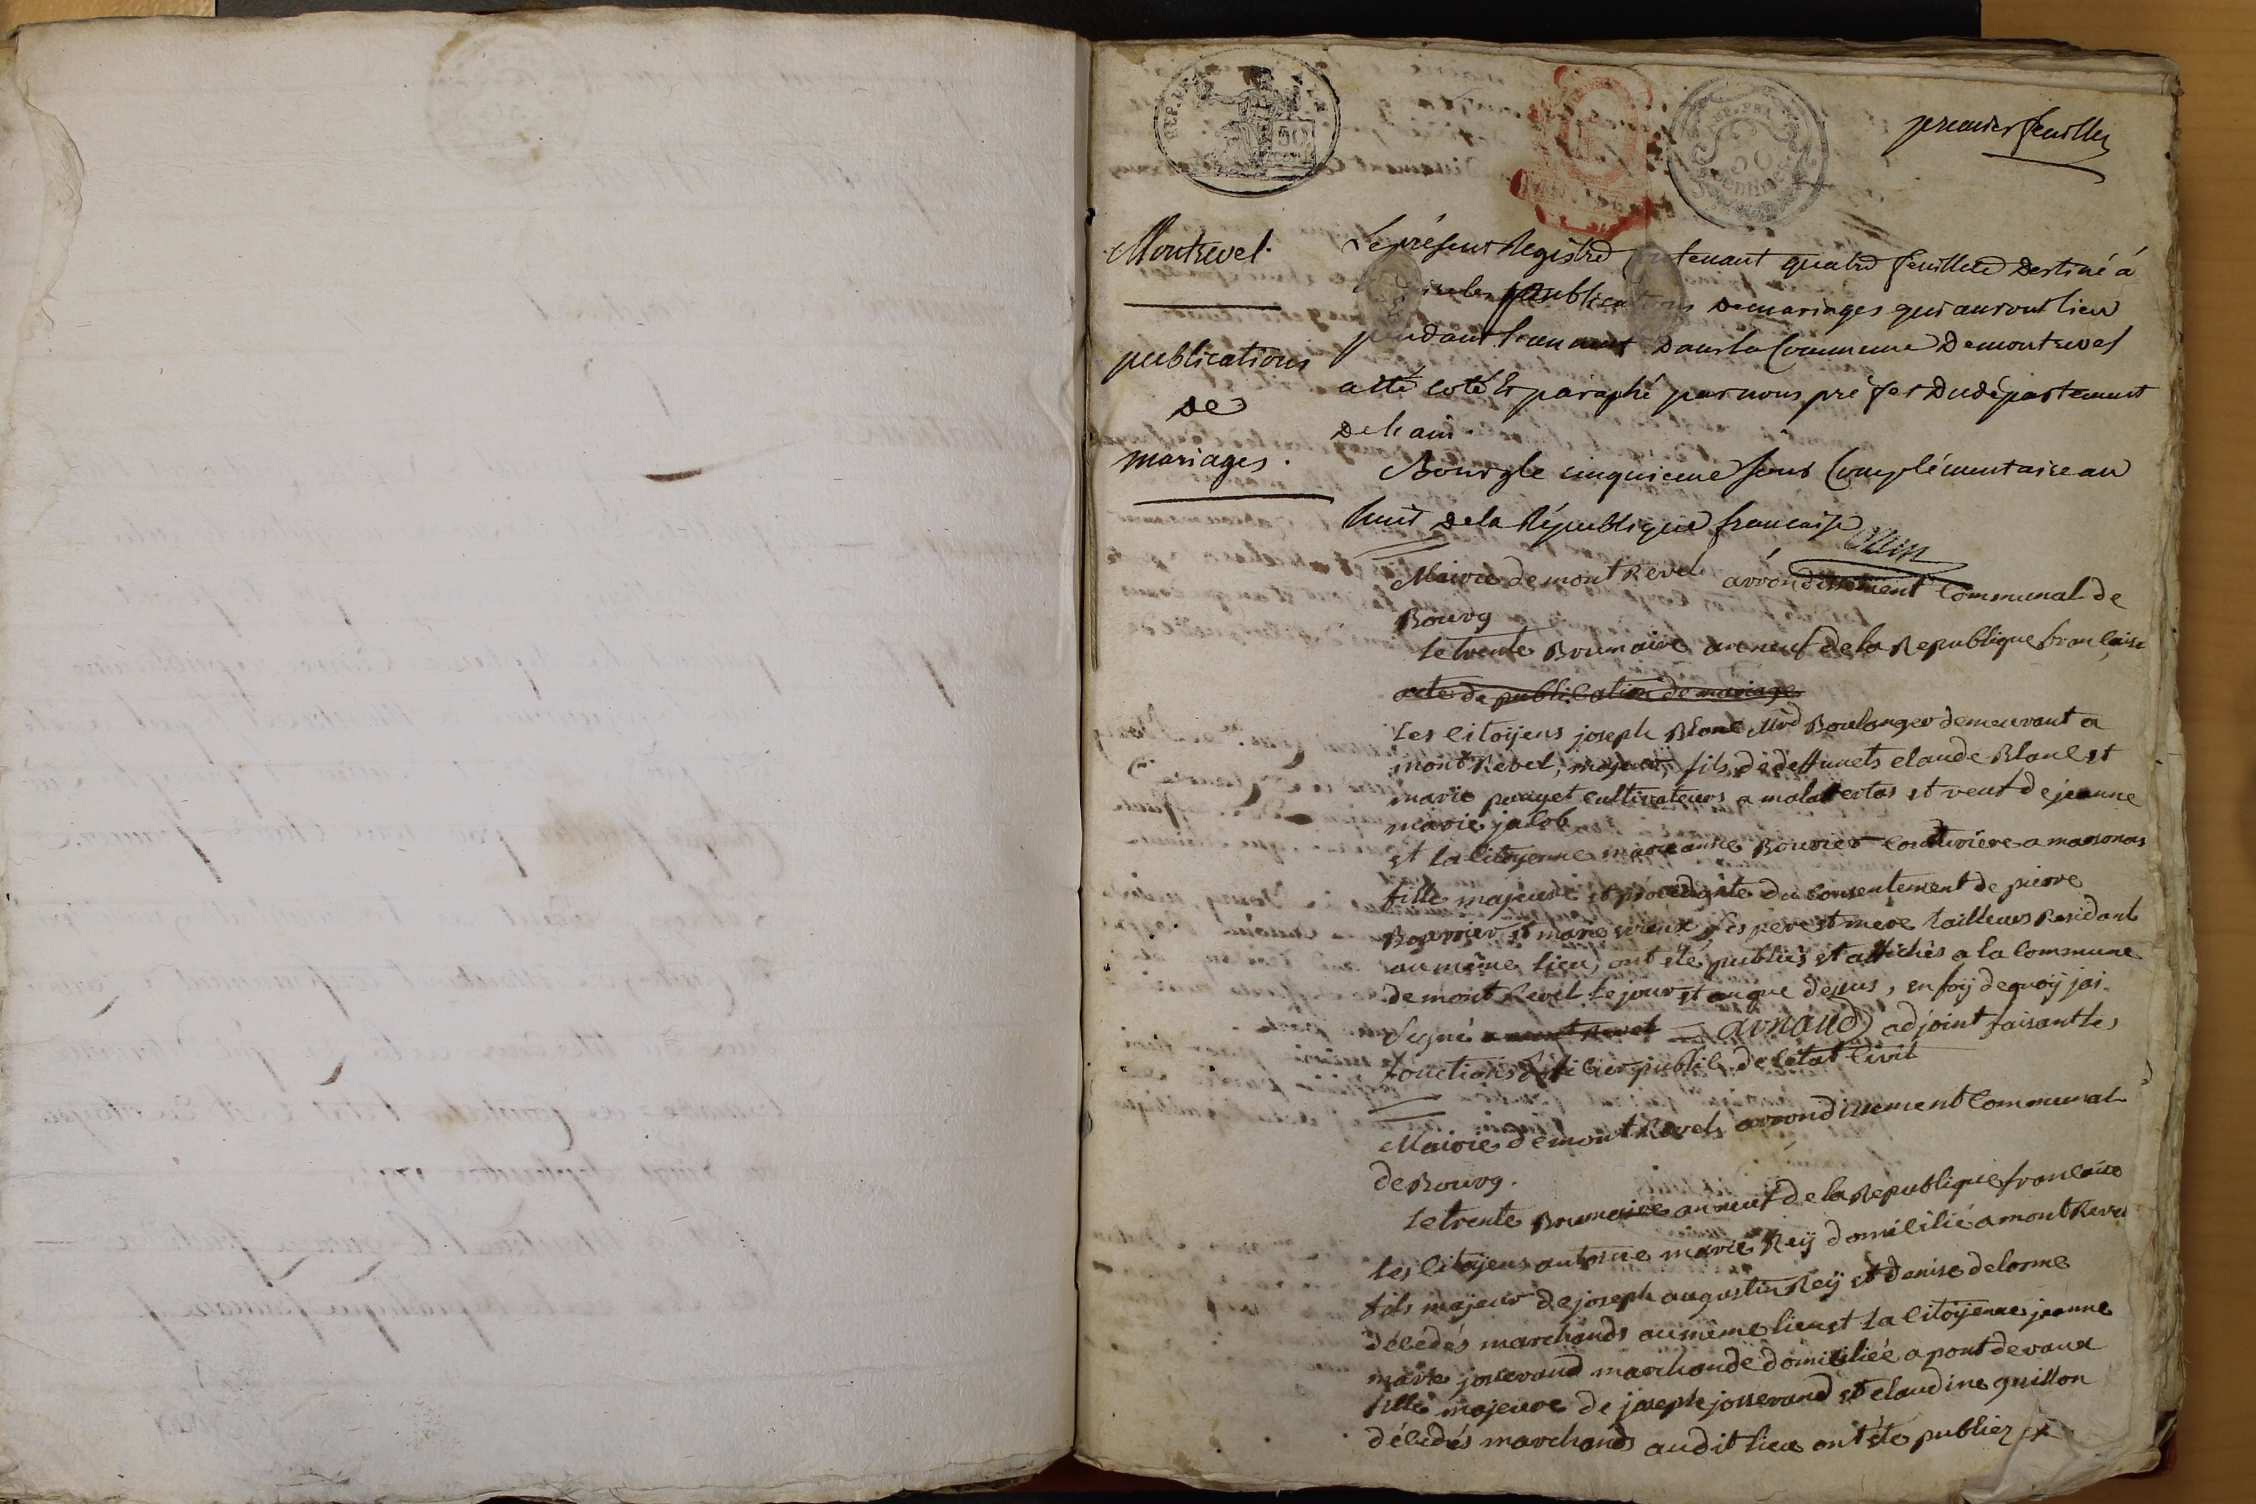 premier feuillet
REP. FRA.
50
CENTIMES
Montrevel.
publications
de
mariages.
Le présent Registre contenant quatre feuillets destiné à
les publications de mariages qui auront lieu
pendant l'an neuf dans la Commune de montrevel
a été coté & paraphé par nous préfet du département
de l'ain.
Bourg le cinquieme jour Complémentaire an
huit de la République française
Mairie de mont Revel arrondissement Communal de
Bourg
le trente Brumaire an neuf de la Republique francaise
acte de publication de mariage
les citoijens joseph Blanc Mrd Boulanger demeurant a
mont Revel, majeur, fils de deffunets claude Blanc et
marie puget cultivateurs a malaffertas et veuf de jeanne
marie jacob
et la citoyenne marie anne Bouvier couturiere a marsonas
fille majeure et procedante du consentement de pierre
Bouvier et marie ses pere et mere tailleurs Residant
au même lieu, ont été publiés et affichés a la commune
de mont Revel le jour et an que dessus, en foij de quoij jai
signé a mont Revel arnaud adjoint faisant les
fonctions dofficier public de letat civil
Mairie de mont Revel arrondissement Communal
de Bourg.
le trente Brumaire an neuf de la Republique francaise
les citoijens antoine marie Reij domicilié a mont Revel
fils majeur de joseph augustin Reij et denise delorme
décédés marchands au même lieu et la citoijenne jeanne
marie josserand marchande domiciliée a pont de vaux
fille majeure de joseph josserand et claudine guillon
décédés marchands audit lieu ont été publiez et